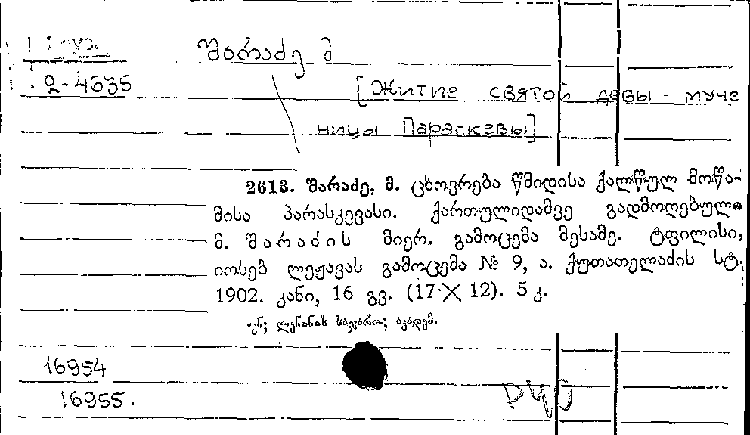 შარაძე მ
2-4635
[Житие святой девы - муче
ницы Параскевы]
2613. შარაძე, მ. ცხოვრება წმიდისა ქალწულ მოწა-
მისა პარასკევასი. ქართულიდამვე გადმოღებული
მ. შარაძის მიერ. გამოცემა მესამე. ტფილისი,
იოსებ ლეჟავას გამოცემა № 9, ა. ქუთათელაძის სტ.
1902. კანი, 16 გვ. (17×12). 5 კ.
16954
16955.